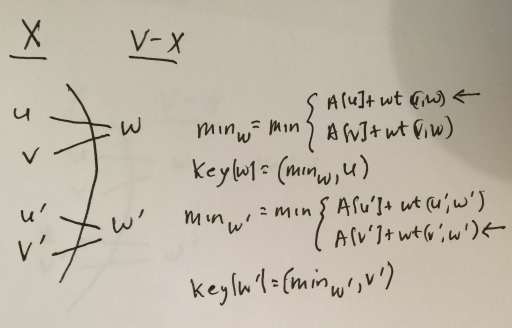 X V-X
u
v
w
min_w = min { A[u] + wt (u,w) ←
A[v] + wt (v,w)
key[w] = (min_w, u)
u'
v'
w'
min_w' = min { A[u'] + wt (u', w')
A[v'] + wt (v', w') ←
key[w'] = (min_w', v')